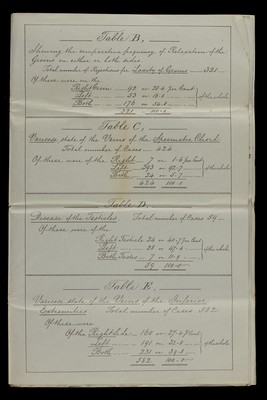 Table B,
Shewing the comparative frequency of Relaxation of the
Groins on either or both sides.
Total number of Rejections for Laxity of Groins ... 321
Of these were on the
Right Groin ... 92 or 28.6 per Cent
Left ... 53 or 16.6 of the whole
Both ... 176 or 54.8
321 100.0
Table C,
Varicose state of the Veins of the Spermatic Chord
Total number of Cases ... 424
Of these were of the Right ... 7 or 1.6 per Cent
Left ... 393 or 92.7 of the whole
Both ... 24 or 5.7
424 100.0
Table D,
Disease of the Testicles Total number of Cases 59
Of these were of the
Right Testicle 24 or 40.7 per Cent
Left ... 28 or 47.4 of the whole
Both Testes ... 7 or 11.9
59 100.0
Table E,
Varicose state of the Veins of the Inferior
Extremities Total number of Cases 582
Of these were
Of the Right Side 160 or 27.5 per Cent
Left ... 191 or 32.8 of the whole
Both ... 231 or 39.7
582 100.0